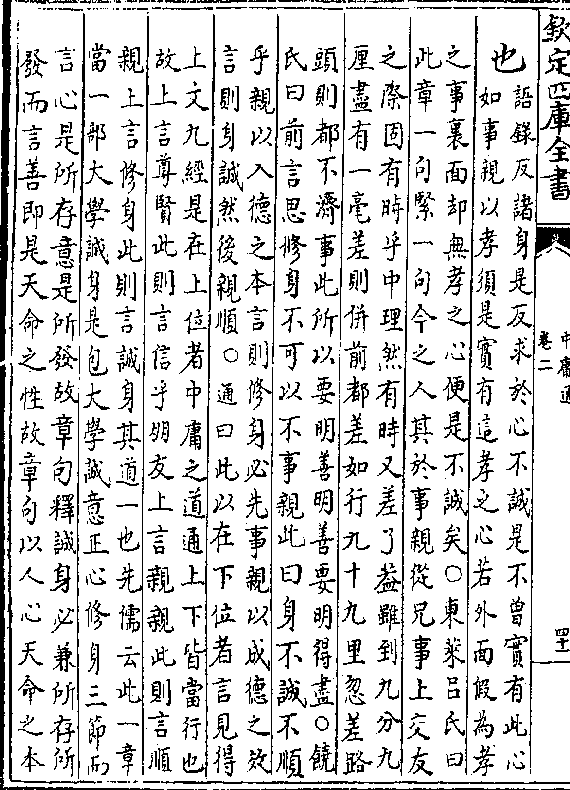 欽定四庫全書
中庸通
卷二
四十一
也語錄反諸身是反求於心不誠是不曾實有此心
如事親以孝須是實有這孝之心若外面假為孝
之事裏面却無孝之心便是不誠矣○東萊呂氏曰
此章一句緊一句今之人其於事親從兄事上交友
之際固有時乎中理然有時又差了蓋雖到九分九
厘盡有一毫差則併前都差如行九十九里忽差路
頭則都不濟事此所以要明善明善要明得盡○饒
氏曰前言思修身不可以不事親此曰身不誠不順
乎親以入德之本言則修身必先事親以成德之效
言則身誠然後親順○通曰此以在下位者言見得
上文九經是在上位者中庸之道通上下皆當行也
故上言尊賢此則言信乎朋友上言親親此則言順
親上言修身此則言誠身其道一也先儒云此一章
當一部大學誠身是包大學誠意正心修身三節而
言心是所存意是所發故章句釋誠身必兼所存所
發而言善即是天命之性故章句以人心天命之本